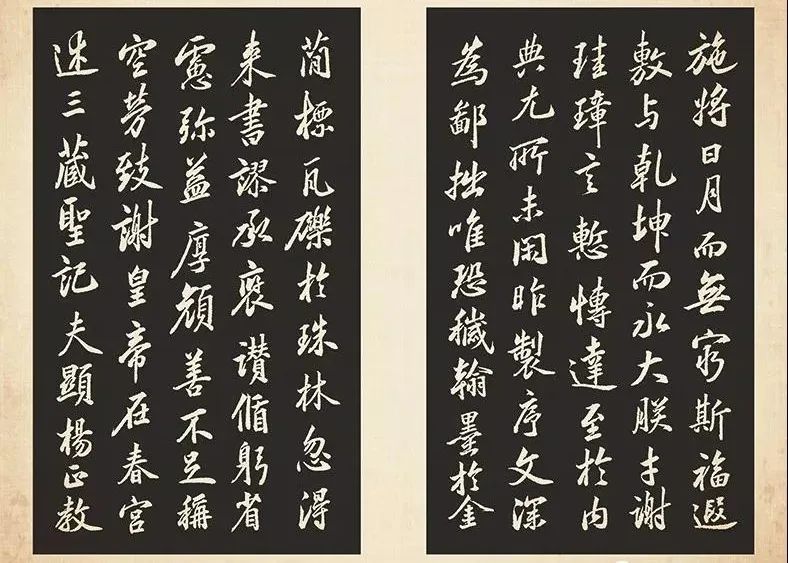 施将日月而無窮斯福遐
敷与乾坤而永大朕才謝
珪璋言慙博達至於内
典尤所未閑昨製序文深
為鄙拙唯恐穢翰墨於金
簡標瓦礫於珠林忽得
来書謬承褒讃循躬省
慮弥益厚顔善不足稱
空勞致謝皇帝在春宮
述三藏聖記夫顯楊正教